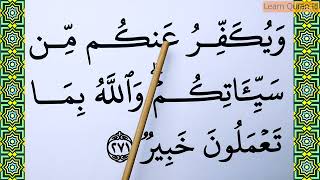 Learn Quran id
وَيُكَفِّرُ عَنكُم مِّن
سَيِّـَٔاتِكُمْ ۗ وَٱللَّهُ بِمَا
تَعْمَلُونَ خَبِيرٌ ﴿٢٧١﴾